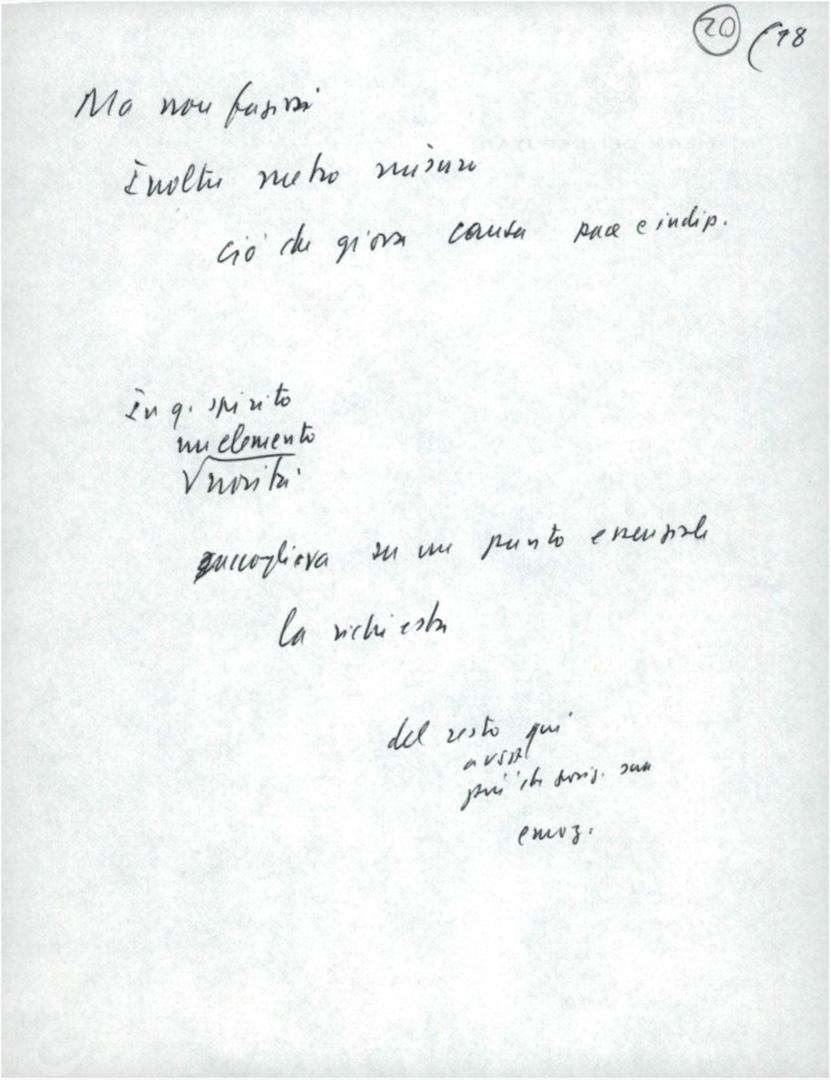 20 (18
Ma non
Inoltre metro misura
ciò che giova causa pace e indip.
In q. spirito
un elemento
novità
raccoglieva su un punto essenziale
la richiesta
del resto qui
più che
emoz.